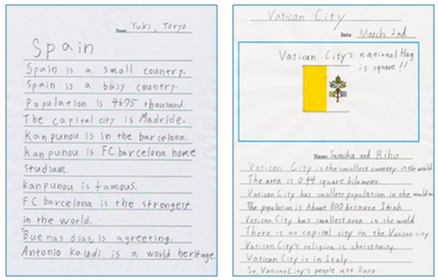 Name Yuki, Toryo
Spain
Spain is a small country.
Spain is a busy country.
Population is 4675 thousand.
The capital city is Madride.
Kanpunou is in the barcelona.
Kanpunou is FC barcelona home
studiam.
Kanpunou is famous.
FC barcelona is the strongest
in the world.
Buenas dias is agreeting.
Antonio Kaudi is a world heritage
Vatican City
Date March 2nd
Vatican City's national flag
is square!!
Name Sanuka and Riho
Vatican City is the smallest country in the world
The area is 0.44 square kilometer.
Vatican City has smallest population in the world
The population is About 800 because
Vatican City has smallest area in the world
There is no capital city on the Vatican city.
Vatican City's religion is christianity.
Vatican City is in Italy.
So Vatican City's people use Euro.